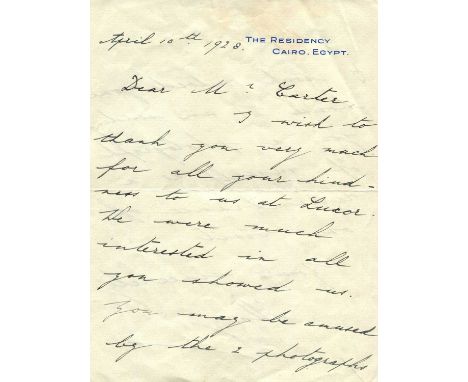 THE RESIDENCY
CAIRO, EGYPT.
April 10th 1928.
Dear Mr Carter
I wish to
thank you very much
for all your kind-
ness to us at Luxor.
We were much
interested in all
you showed us.
You may be amused
by the 2 photographs